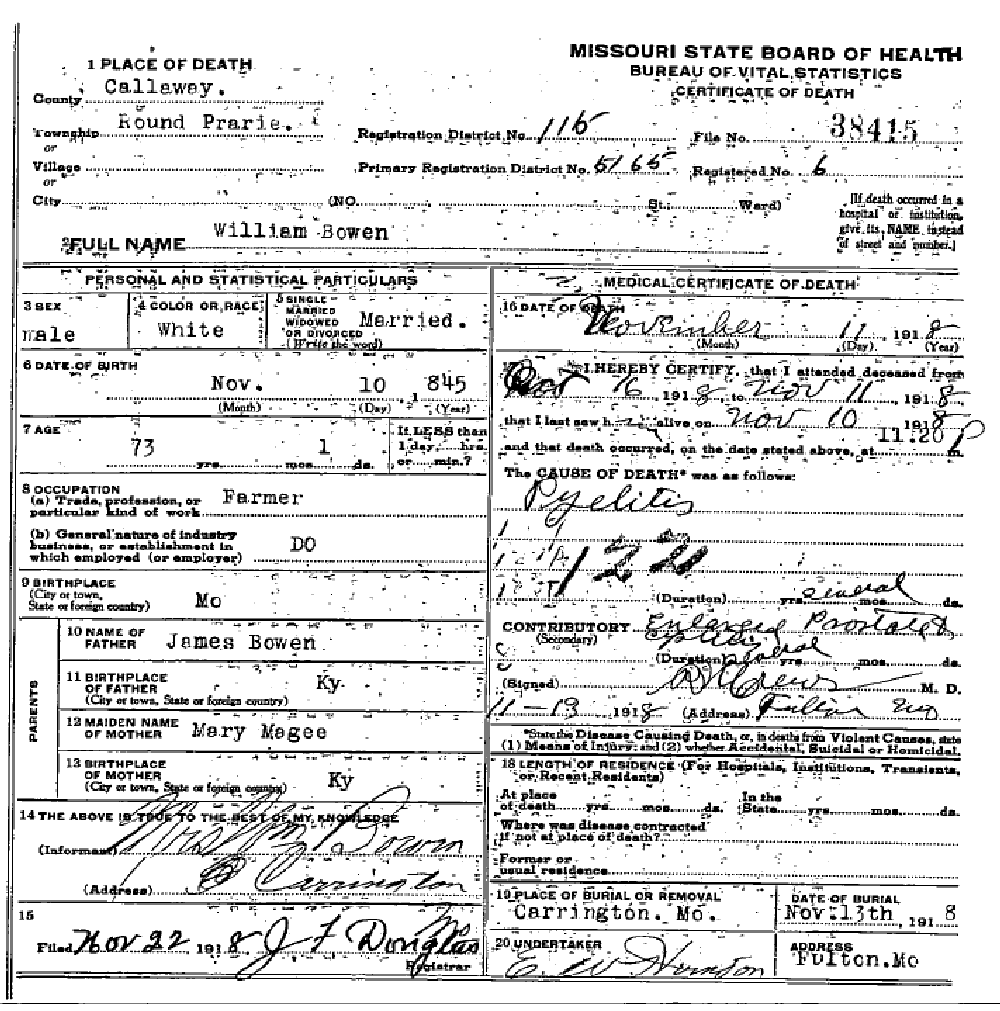 MISSOURI STATE BOARD OF HEALTH
BUREAU OF VITAL STATISTICS
CERTIFICATE OF DEATH
1 PLACE OF DEATH
County Callaway.
Township Round Prarie.
or
Village
or
City (NO. St.; Ward)
Registration District No. 115
File No. 38415
Primary Registration District No. 5165
Registered No. 6
[If death occurred in a
hospital or institution,
give its NAME instead
of street and number.]
2 FULL NAME William Bowen
PERSONAL AND STATISTICAL PARTICULARS
3 SEX
male
4 COLOR OR RACE
White
5 SINGLE
MARRIED
WIDOWED
OR DIVORCED
(Write the word)
Married.
6 DATE OF BIRTH
Nov. 10 1845
(Month) (Day) (Year)
7 AGE
73 yrs. mos. 1 ds.
If LESS than
1 day, hrs.
or min.?
8 OCCUPATION
(a) Trade, profession, or
particular kind of work Farmer
(b) General nature of industry
business, or establishment in
which employed (or employer) DO
9 BIRTHPLACE
(City or town,
State or foreign country) Mo
PARENTS
10 NAME OF
FATHER James Bowen
11 BIRTHPLACE
OF FATHER Ky.
(City or town, State or foreign country)
12 MAIDEN NAME
OF MOTHER Mary Magee
13 BIRTHPLACE
OF MOTHER Ky
(City or town, State or foreign country)
14 THE ABOVE IS TRUE TO THE BEST OF MY KNOWLEDGE
(Informant) Mrs Wm Bowen
(Address) Carrington
Mo
15
Filed Nov 22 1918 J F Douglas
Registrar
MEDICAL CERTIFICATE OF DEATH
16 DATE OF DEATH
November 11 1918
(Month) (Day) (Year)
I HEREBY CERTIFY, that I attended deceased from
Oct 16 1918, to Nov 11 1918,
that I last saw h alive on Nov 10 1918
and that death occurred, on the date stated above, at 11:20 P m.
The CAUSE OF DEATH* was as follows:
Pyelitis
(Duration) several yrs. mos. ds.
CONTRIBUTORY Enlarged
(Secondary)
(Duration) several yrs. mos. ds.
(Signed) Crews M. D.
11-13 1918 (Address) Fulton Mo
*State the Disease Causing Death, or, in deaths from Violent Causes, state
(1) Means of Injury; and (2) whether Accidental, Suicidal or Homicidal.
18 LENGTH OF RESIDENCE (For Hospitals, Institutions, Transients,
or Recent Residents)
At place
of death yrs. mos. ds.
In the
State yrs. mos. ds.
Where was disease contracted
if not at place of death?
Former or
usual residence
19 PLACE OF BURIAL OR REMOVAL
Carrington. Mo.
DATE OF BURIAL
Nov. 13th, 1918
20 UNDERTAKER
E. W.
ADDRESS
Fulton.Mo